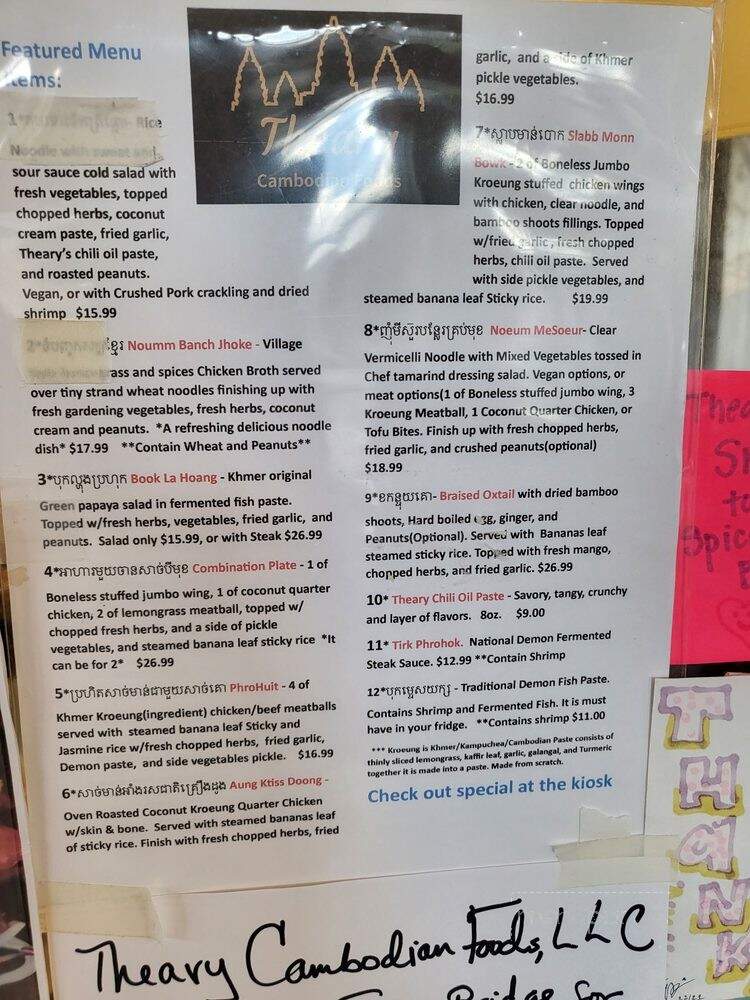 Featured Menu
Items:
Theary
Cambodian Foods
1 Rice
Noodle with sweet and
sour sauce cold salad with
fresh vegetables, topped
chopped herbs, coconut
cream paste, fried garlic,
Theary's chili oil paste,
and roasted peanuts.
Vegan, or with Crushed Pork crackling and dried
shrimp $15.99
ខ្មែរ Noumm Banch Jhoke - Village
rass and spices Chicken Broth served
over tiny strand wheat noodles finishing up with
fresh gardening vegetables, fresh herbs, coconut
cream and peanuts. *A refreshing delicious noodle
dish* $17.99 **Contain Wheat and Peanuts**
3*បុកល្ហុងប្រហុក Book La Hoang - Khmer original
Green papaya salad in fermented fish paste.
Topped w/fresh herbs, vegetables, fried garlic, and
peanuts. Salad only $15.99, or with Steak $26.99
4*អាហារមួយចានសាច់បីមុខ Combination Plate - 1 of
Boneless stuffed jumbo wing, 1 of coconut quarter
chicken, 2 of lemongrass meatball, topped w/
chopped fresh herbs, and a side of pickle
vegetables, and steamed banana leaf sticky rice *It
can be for 2* $26.99
5*ប្រហិតសាច់មាន់ជាមួយសាច់គោ PhroHuit - 4 of
Khmer Kroeung(ingredient) chicken/beef meatballs
served with steamed banana leaf Sticky and
Jasmine rice w/fresh chopped herbs, fried garlic,
Demon paste, and side vegetables pickle. $16.99
6*សាច់មាន់អាំងរសជាតិគ្រឿងដូង Aung Ktiss Doong -
Oven Roasted Coconut Kroeung Quarter Chicken
w/skin & bone. Served with steamed bananas leaf
of sticky rice. Finish with fresh chopped herbs, fried
garlic, and a side of Khmer
pickle vegetables.
$16.99
7*ស្លាបមាន់បោក Slabb Monn
Bowk - 2 of Boneless Jumbo
Kroeung stuffed chicken wings
with chicken, clear noodle, and
bamboo shoots fillings. Topped
w/fried garlic, fresh chopped
herbs, chili oil paste. Served
with side pickle vegetables, and
steamed banana leaf Sticky rice. $19.99
8*ញុំមីសួរបន្លែគ្រប់មុខ Noeum MeSoeur- Clear
Vermicelli Noodle with Mixed Vegetables tossed in
Chef tamarind dressing salad. Vegan options, or
meat options(1 of Boneless stuffed jumbo wing, 3
Kroeung Meatball, 1 Coconut Quarter Chicken, or
Tofu Bites. Finish up with fresh chopped herbs,
fried garlic, and crushed peanuts(optional)
$18.99
9*ខកន្ទុយគោ- Braised Oxtail with dried bamboo
shoots, Hard boiled egg, ginger, and
Peanuts(Optional). Served with Bananas leaf
steamed sticky rice. Topped with fresh mango,
chopped herbs, and fried garlic. $26.99
10* Theary Chili Oil Paste - Savory, tangy, crunchy
and layer of flavors. 8oz. $9.00
11* Tirk Phrohok. National Demon Fermented
Steak Sauce. $12.99 **Contain Shrimp
12*បុកម្ទេសយក្ស - Traditional Demon Fish Paste.
Contains Shrimp and Fermented Fish. It is must
have in your fridge. **Contains shrimp $11.00
*** Kroeung is Khmer/Kampuchea/Cambodian Paste consists of
thinly sliced lemongrass, kaffir leaf, garlic, galangal, and Turmeric
together it is made into a paste. Made from scratch.
Check out special at the kiosk
Theary Cambodian Foods, LLC
Bridge for
Thea
to
Spic
THANK